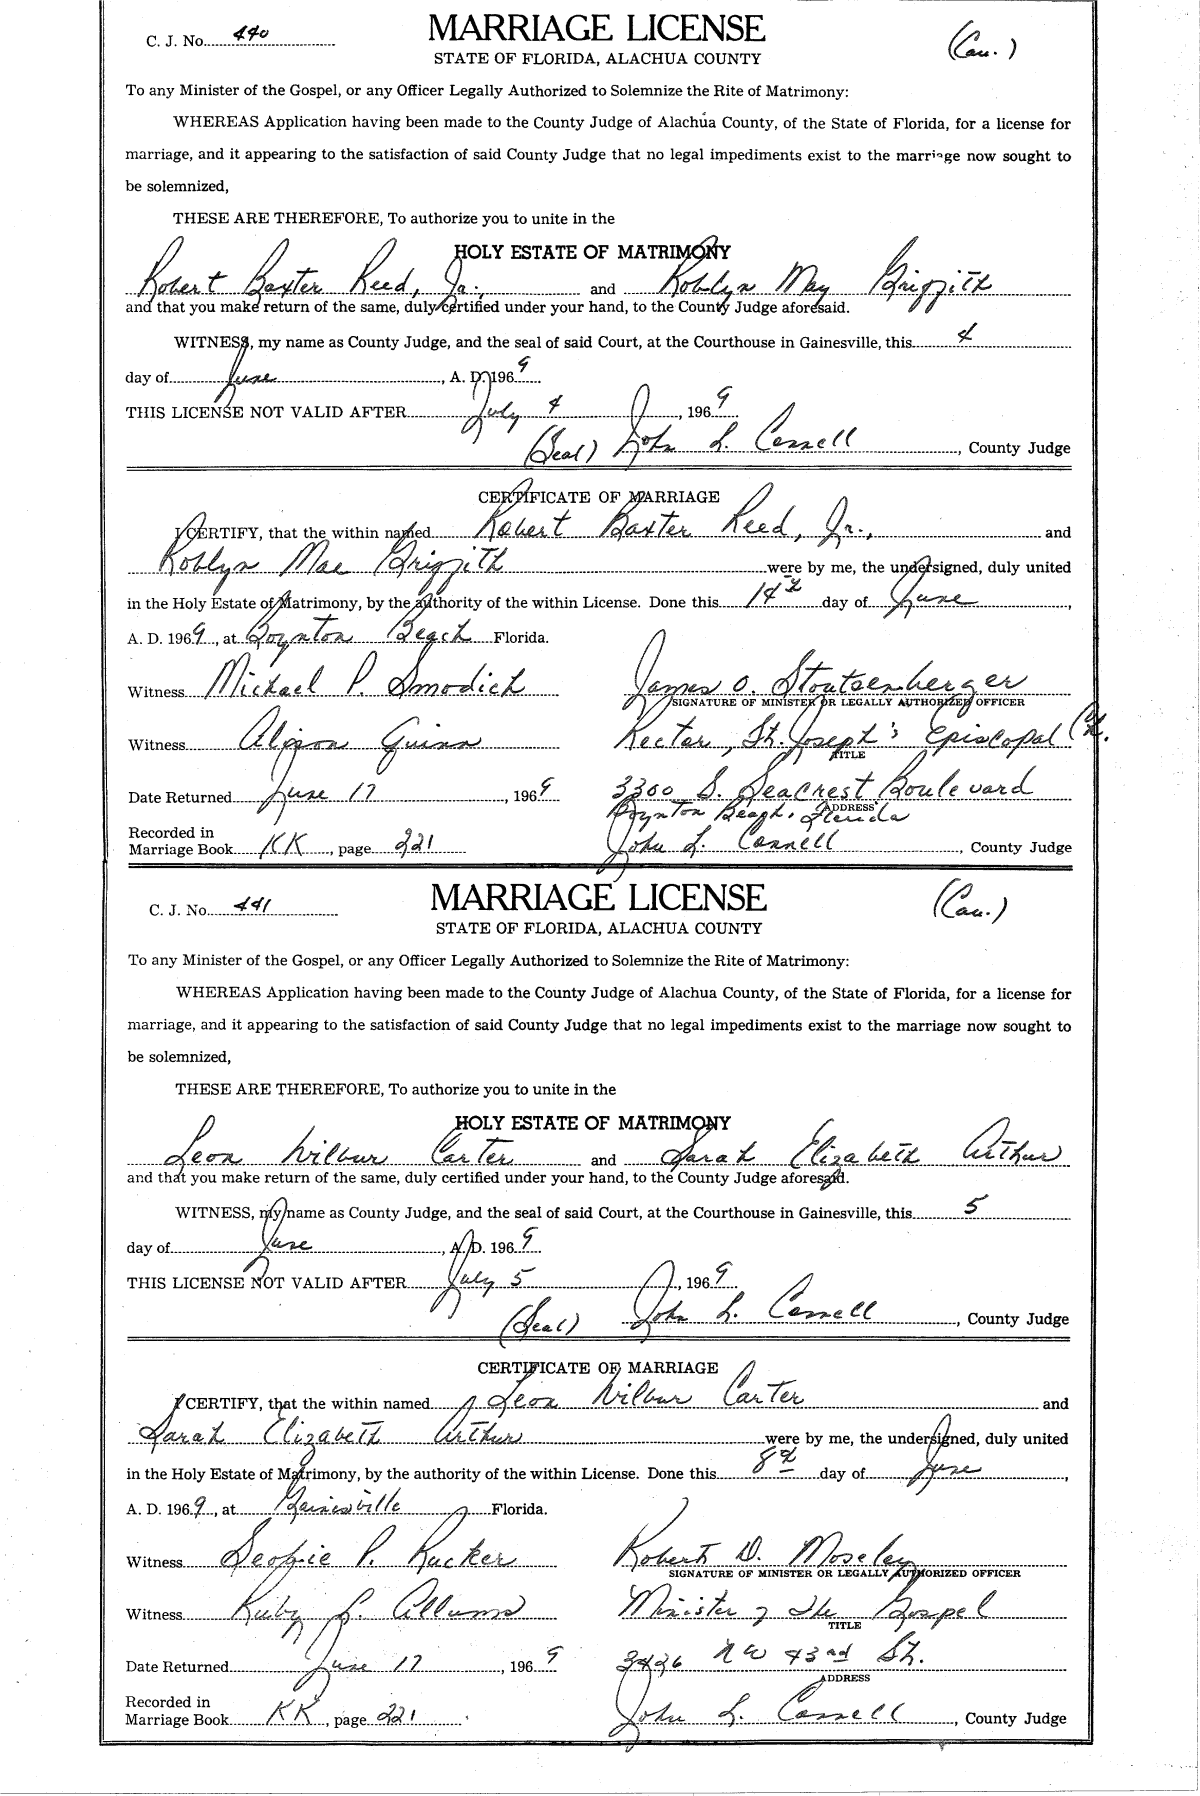 C. J. No. 440
MARRIAGE LICENSE
(Cau.)
STATE OF FLORIDA, ALACHUA COUNTY
To any Minister of the Gospel, or any Officer Legally Authorized to Solemnize the Rite of Matrimony:
WHEREAS Application having been made to the County Judge of Alachua County, of the State of Florida, for a license for
marriage, and it appearing to the satisfaction of said County Judge that no legal impediments exist to the marriage now sought to
be solemnized,
THESE ARE THEREFORE, To authorize you to unite in the
HOLY ESTATE OF MATRIMONY
Robert Baxter Reed, Jr., and Roblyn May Griffith
and that you make return of the same, duly certified under your hand, to the County Judge aforesaid.
WITNESS, my name as County Judge, and the seal of said Court, at the Courthouse in Gainesville, this 4
day of June, A. D. 1969
THIS LICENSE NOT VALID AFTER July 4, 1969
(Seal) John L. Connell, County Judge
CERTIFICATE OF MARRIAGE
I CERTIFY, that the within named Robert Baxter Reed, Jr., and
Roblyn Mae Griffith were by me, the undersigned, duly united
in the Holy Estate of Matrimony, by the authority of the within License. Done this 14th day of June,
A. D. 1969, at Boynton Beach Florida.
Witness Michael P. Smodich James O. Stoutsenberger
SIGNATURE OF MINISTER OR LEGALLY AUTHORIZED OFFICER
Witness Alison Guinn Rector, St. Joseph's Episcopal Ch.
TITLE
Date Returned June 17, 1969 3300 S. Seacrest Boulevard
ADDRESS
Boynton Beach, Florida
Recorded in
Marriage Book KK, page 221 John L. Connell, County Judge
C. J. No. 441
MARRIAGE LICENSE
(Cau.)
STATE OF FLORIDA, ALACHUA COUNTY
To any Minister of the Gospel, or any Officer Legally Authorized to Solemnize the Rite of Matrimony:
WHEREAS Application having been made to the County Judge of Alachua County, of the State of Florida, for a license for
marriage, and it appearing to the satisfaction of said County Judge that no legal impediments exist to the marriage now sought to
be solemnized,
THESE ARE THEREFORE, To authorize you to unite in the
HOLY ESTATE OF MATRIMONY
Leon Wilbur Carter and Sarah Elizabeth Arthur
and that you make return of the same, duly certified under your hand, to the County Judge aforesaid.
WITNESS, my name as County Judge, and the seal of said Court, at the Courthouse in Gainesville, this 5
day of June, A. D. 1969
THIS LICENSE NOT VALID AFTER July 5, 1969
(Seal) John L. Connell, County Judge
CERTIFICATE OF MARRIAGE
I CERTIFY, that the within named Leon Wilbur Carter and
Sarah Elizabeth Arthur were by me, the undersigned, duly united
in the Holy Estate of Matrimony, by the authority of the within License. Done this 8th day of June,
A. D. 1969, at Gainesville Florida.
Witness P. Rucker Robert D. Moseley
SIGNATURE OF MINISTER OR LEGALLY AUTHORIZED OFFICER
Witness Ruby L. Allums Minister of the Gospel
TITLE
Date Returned June 17, 1969 3426 NW 43rd St.
ADDRESS
Recorded in
Marriage Book KK, page 221 John L. Connell, County Judge